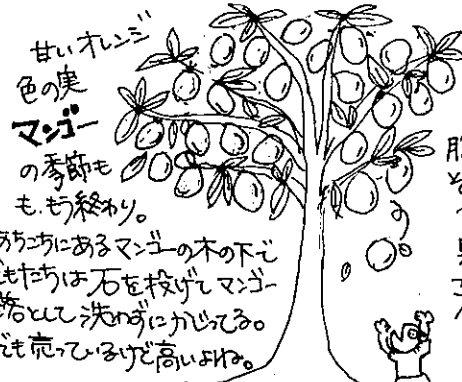 甘いオレンジ
色の実
マンゴー
の季節も
も、もう終わり。
あちこちにあるマンゴーの木の下で
どもたちは石を投げてマンゴー
落として洗わずにかじってる。
でも売っているけど高いよね。